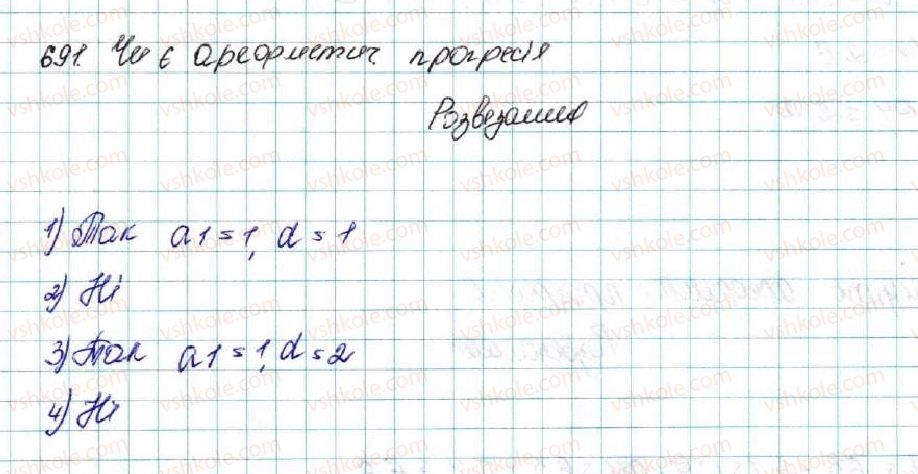 691. Чи є арефметич. прогресія
Розвезання
1) Так a1 = 1, d = 1
2) Ні
3) Так a1 = 1, d = 2
4) Ні